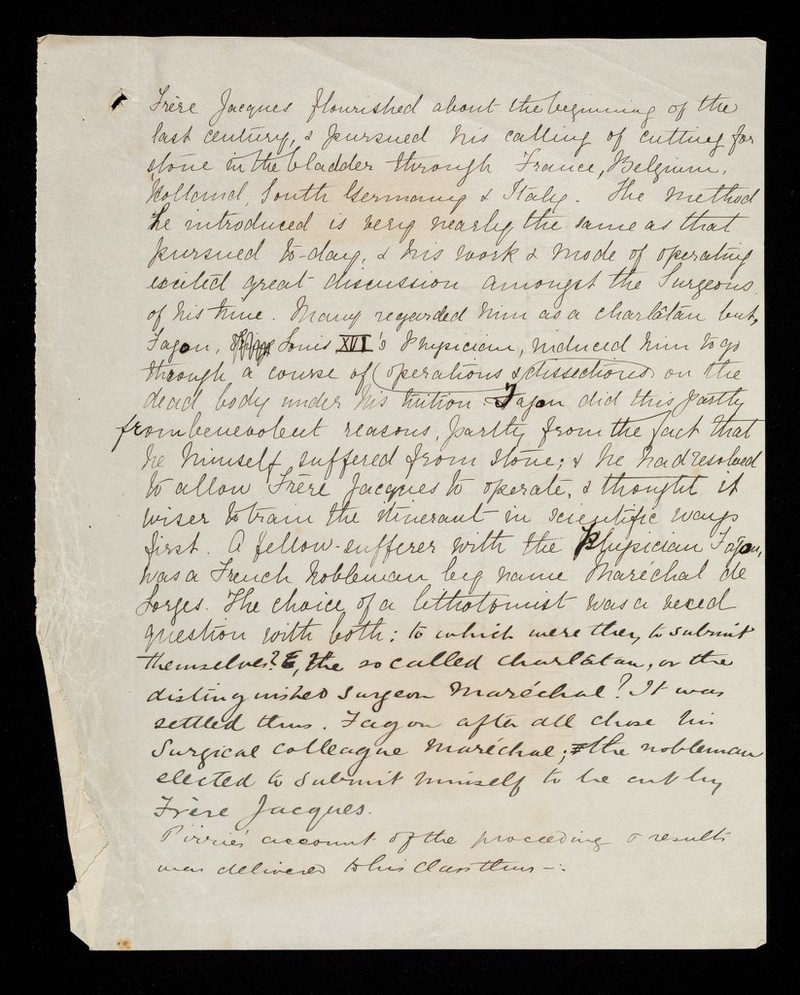 Frère Jacques flourished about the beginning of the
last century, & pursued his calling of cutting for
stone in the bladder through France, Belgium,
Holland, South Germany & Italy. The method
he introduced is very nearly the same as that
pursued to-day, & his work & mode of operating
excited great discussion amongst the Surgeons
of his time. Many regarded him as a charlatan but,
Fagon, Louis XVI's Physician, induced him to go
through a course of (operations & dissections) on the
dead body under his tuition. Fagon did this partly
from benevolent reasons, partly from the fact that
he himself suffered from stone; & he had resolved
to allow Frère Jacques to operate, & thought it
wiser to train the itinerant in scientific ways
first. A fellow-sufferer with the Physician Fagon,
was a French Nobleman by name Maréchal de
Lorges. The choice of a lithotomist was a vexed
question with both: to which were they to submit
themselves? the so called charlatan, or the
distinguished surgeon Maréchal? It was
settled thus. Fagon after all chose his
Surgical colleague Maréchal; the nobleman
elected to submit himself to be cut by
Frère Jacques.
Pirrie's account of the proceeding & results
was delivered to his class thus -: